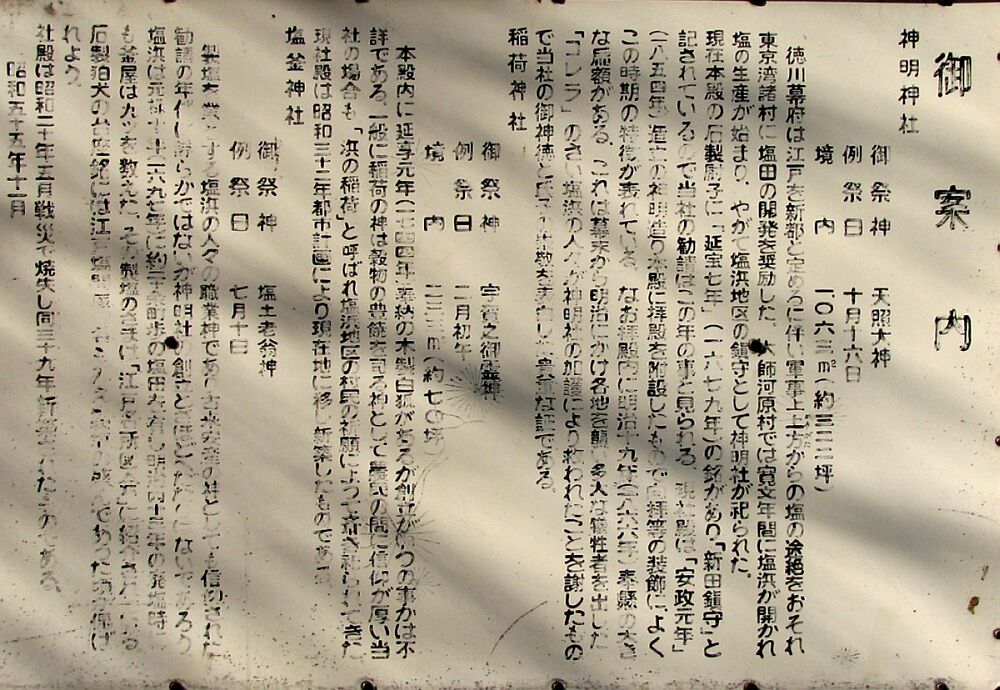 御案内
神明神社
御祭神 天照大神
例祭日 十月十六日
境内 一〇六三㎡(約三二二坪)
徳川幕府は江戸を新都と定めるに伴い軍事上上方からの塩の途絶をおそれ
東京湾諸村に塩田の開発を奨励した。大師河原村では寛文年間に塩浜が開かれ
塩の生産が始まり、やがて塩浜地区の鎮守として神明社が祀られた。
現在本殿の石製厨子に「延宝七年」(一六七九年)の銘があり「新田鎮守」と
記されているので当社の勧請はこの年の事と見られる。現社殿は「安政元年」
(一八五四年)造立の神明造り本殿に拝殿を附設したもので向拝等の装飾によく
この時期の特徴が表れている。なお拝殿内に明治十九年(一八八六年)奉懸の大き
な扁額がある。これは幕末から明治にかけ各地を襲い多大な犠牲者を出した
「コレラ」のさい塩浜の人々が神明社の加護により救われたことを謝したもの
で当社の御神徳と氏子の を表わした貴重な証である。
稲荷神社
御祭神 宇賀之御霊神
例祭日 二月初午
境内 二三三㎡(約七〇坪)
本殿内に延享元年(一七四四年)奉納の木製白狐があるが創立がいつの事かは不
詳である。一般に稲荷の神は穀物の豊饒を司る神として農民の間に信仰が厚い当
社の場合も「浜の稲荷」と呼ばれ塩浜地区の村民の祈願によって 祀られてきた
現社殿は昭和三十二年都市計画により現在地に移し新築したものである。
塩釜神社
御祭神 塩土老翁神
例祭日 七月十日
製塩を業とする塩浜の人々の職業神であり の神としても信仰された
勧請の年代は詳らかではないが神明社の創立とほとんど ないであろう
塩浜は元禄十年(一六九七年)に約二十余町歩の塩田を有し明治四十三年の廃塩時に
も釜屋は九ツを数えた。その製塩の は「江戸名所図会」に紹介され
石製狛犬の台座銘には江戸塩問屋 であった
れよう。
社殿は昭和二十年五月戦災で焼失し同三十九年新 されたものである。
昭和五十五年十一月